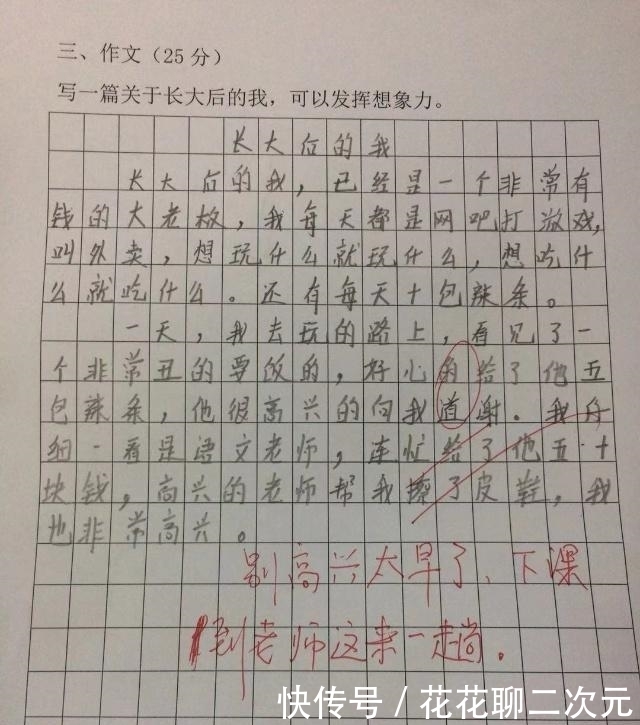 三、作文（25分）
写一篇关于长大后的我，可以发挥想象力。
长大后的我
长大后的我，已经是一个非常有
钱的大老板，我每天都是网吧打游戏，
叫外卖，想玩什么就玩什么，想吃什
么就吃什么。还有每天十包辣条。
一天，我去玩的路上，看见了一
个非常丑的要饭的，好心的给了他五
包辣条，他很高兴的向我道谢。我仔
细一看是语文老师，连忙给了他五十
块钱，高兴的老师帮我擦了皮鞋，我
也非常高兴。
别高兴太早了、下课
到老师这来一趟。
快传号/花花聊二次元